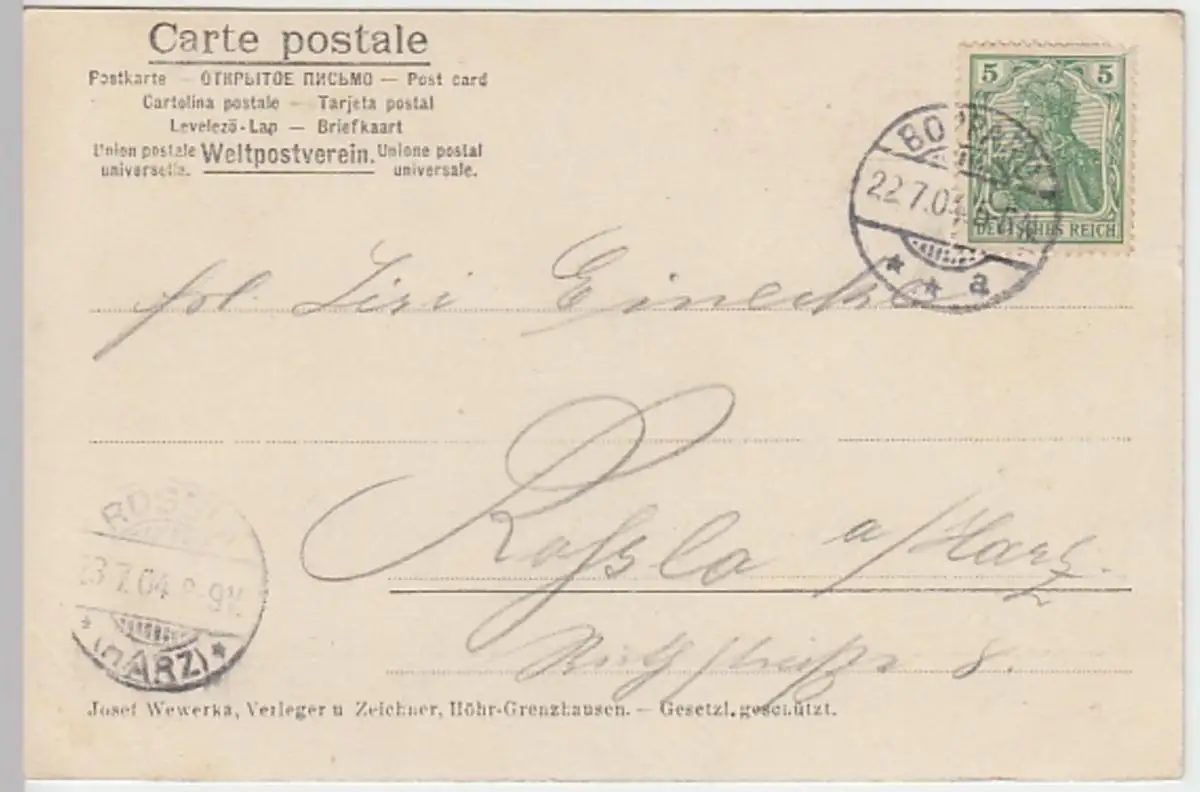 Carte postale
Postkarte — ОТКРЫТОЕ ПИСЬМО — Post card
Cartolina postale — Tarjeta postal
Levelező-Lap — Briefkaart
Union postale universelle. Weltpostverein. Unione postal universale.
5 5
DEUTSCHES REICH
22.7.04
* * a
frl. Lisi Einecke
Rossla a/Harz.
8.
ROSSLA
23.7.04 8-9V.
* (HARZ) *
Josef Wewerka, Verleger u Zeichner, Höhr-Grenzhausen. — Gesetzl. geschützt.